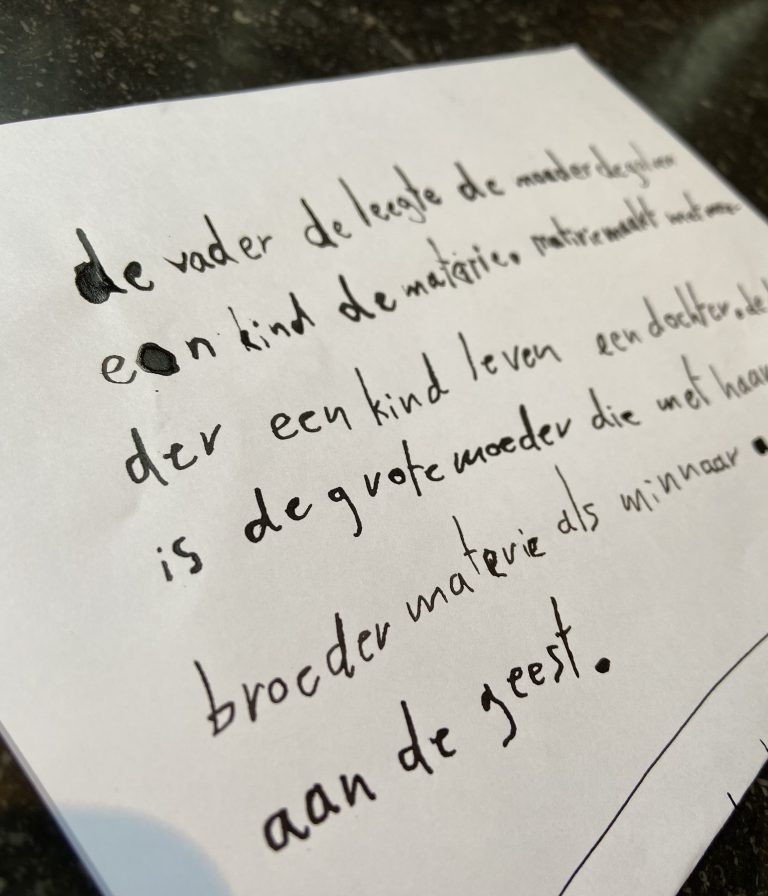 de vader de leegte de moeder de
een kind de materie. materie maakt met
der een kind leven een dochter. de
is de grote moeder die met haar
broeder materie als minnaar
aan de geest.